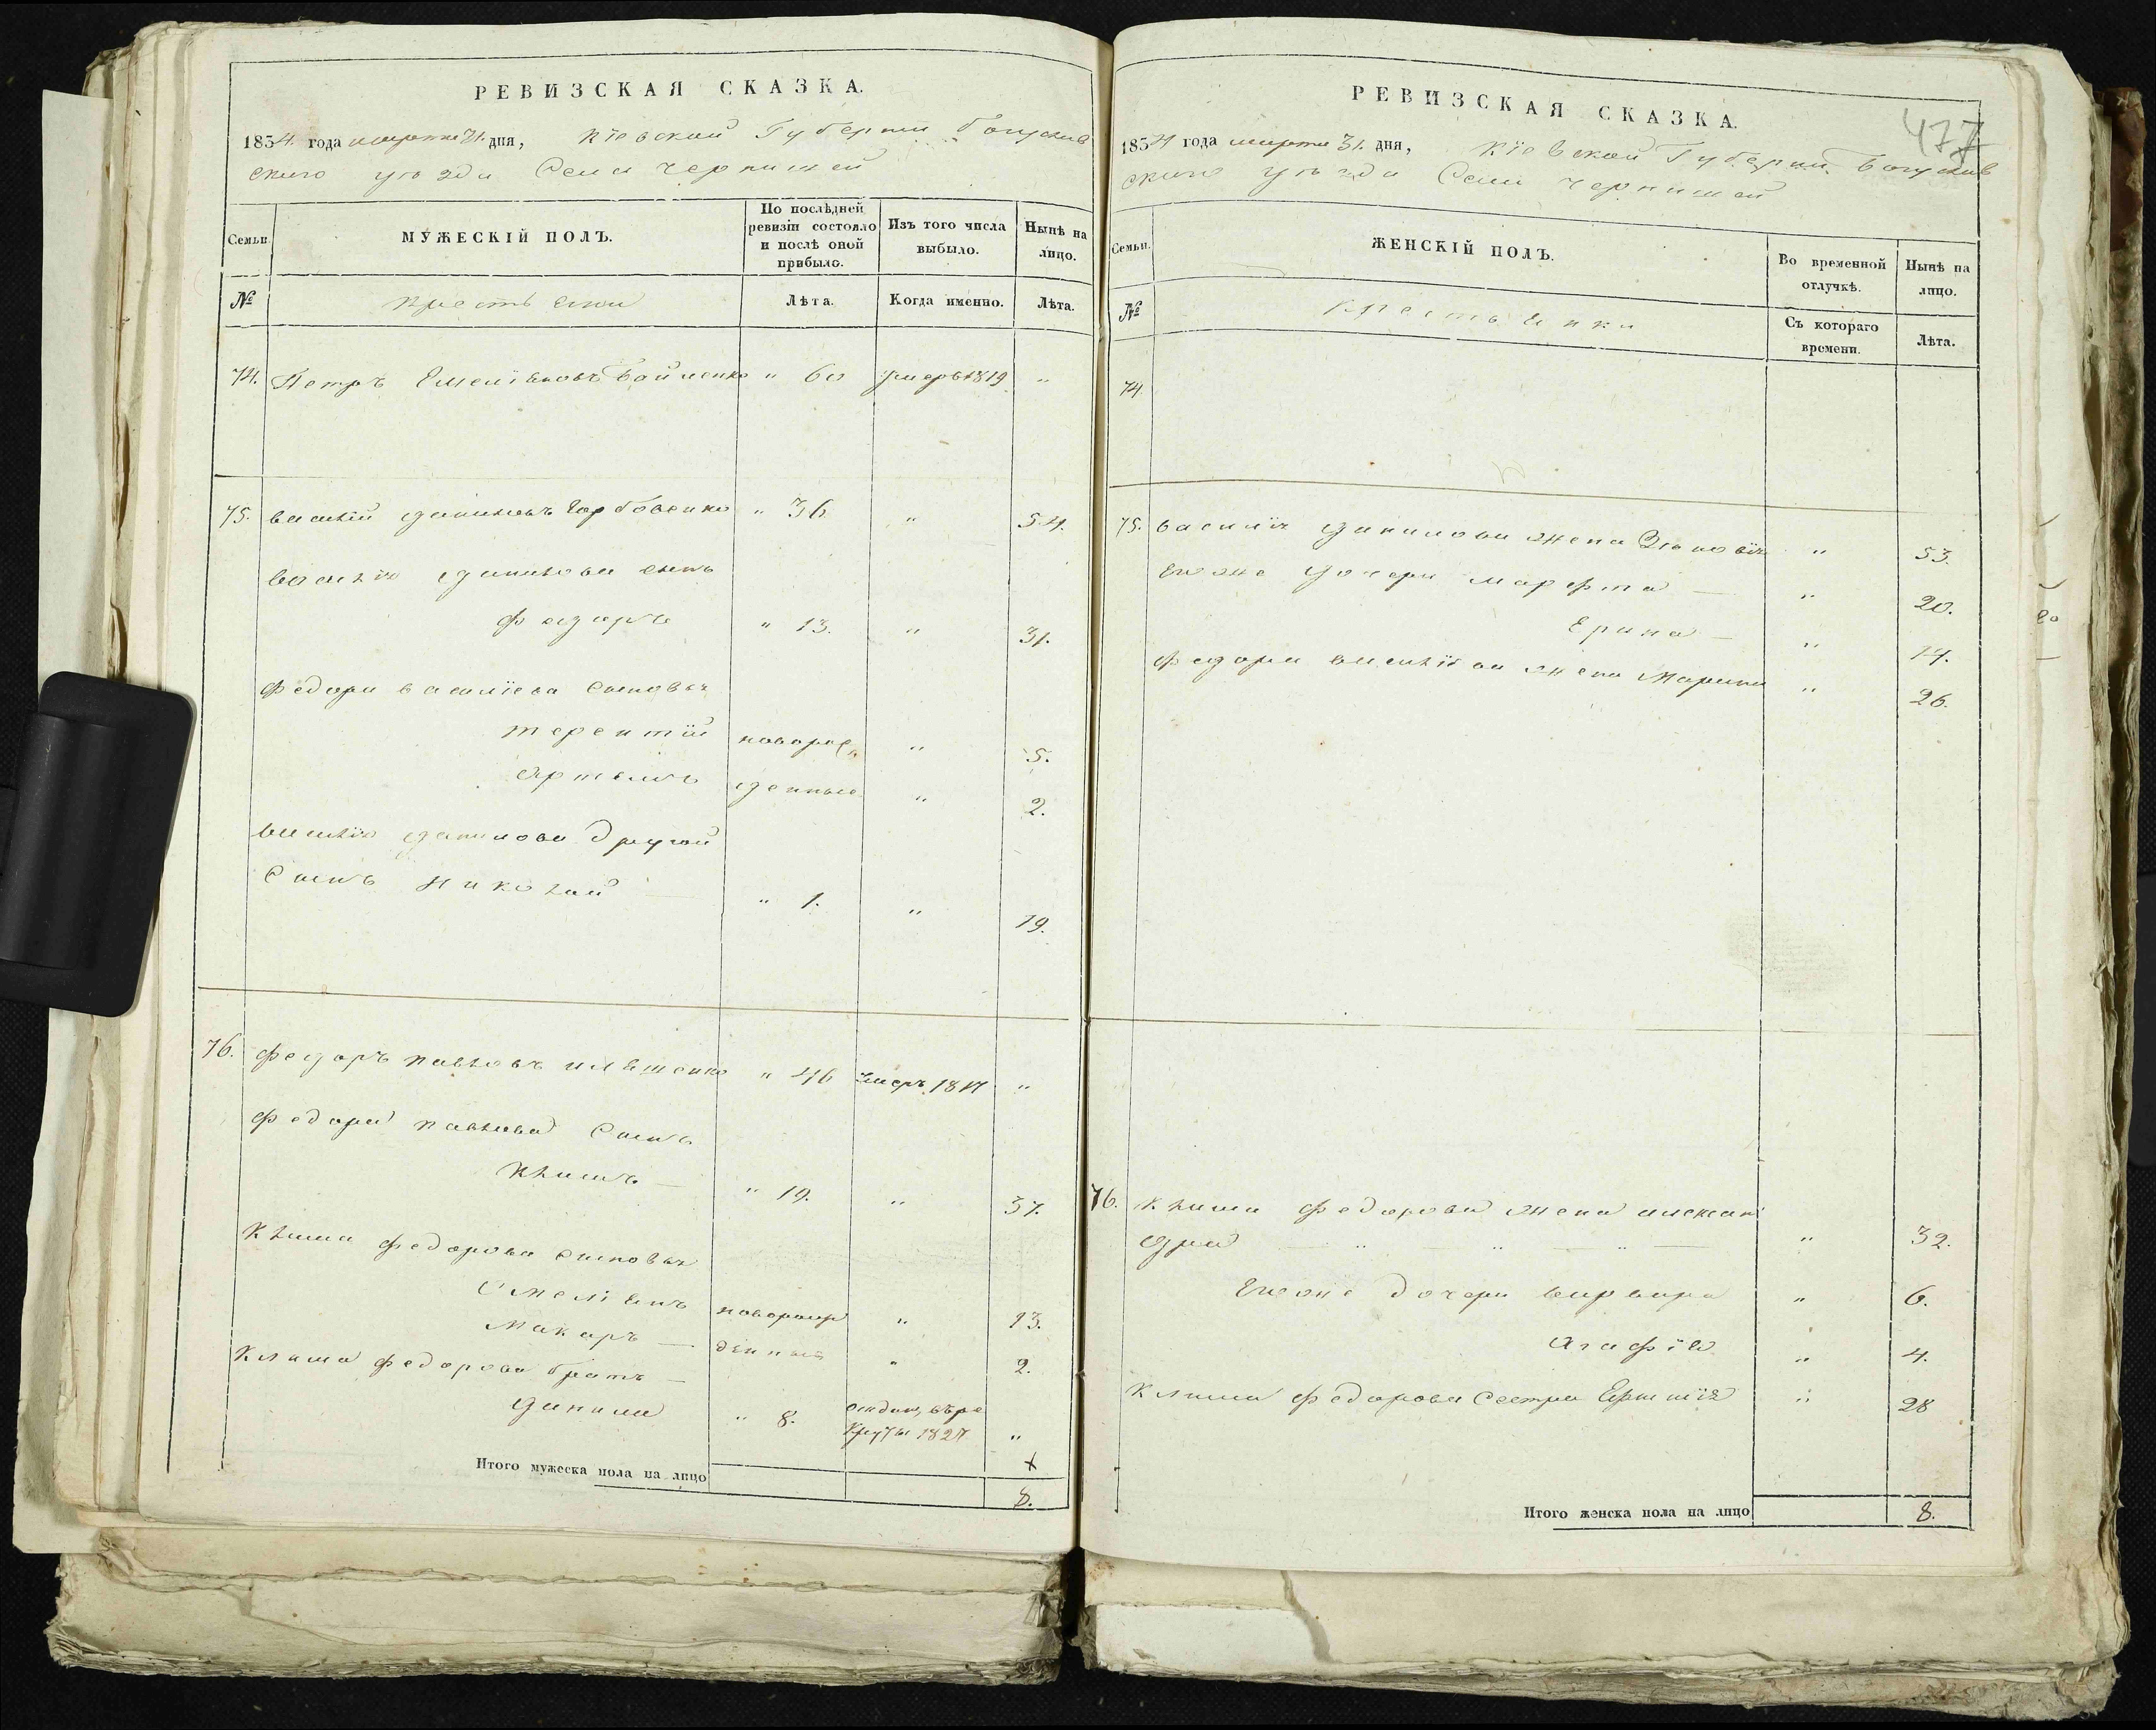 РЕВИЗСКАЯ СКАЗКА.
1834 года марта 31. дня, Кіевской Губерніи Богуслав
скаго уѣзда Села Чернышей
Семьи.
МУЖЕСКІЙ ПОЛЪ.
По послѣдней ревизіи состояло и послѣ оной прибыло.
Изъ того числа выбыло.
Нынѣ на лицо.
№
Крестьяни
Лѣта.
Когда именно.
Лѣта.
74. Петръ Емеліяновъ " 60 умеръ 1819 "
75. Василій Даниловъ Горбовенко " 36 " 54.
Василія Данилова сынъ
Федоръ " 13. " 31.
Федора Василіева сыновья
Терентій новорож " 5.
Артемъ денные " 2.
Василія Данилова другой
Сынъ Николай " 1. " 19.
76. Федоръ Павловъ Иляшенко " 46 умеръ 1817 "
Федора Павлова Сынъ
Климъ " 19. " 37.
Клима Федорова сыновья
Емеліянъ новорож " 13.
Макаръ денные " 2.
Клима Федорова братъ
Данила " 8. отдан, въ ре
круты 1827 "
Итого мужеска пола на лицо
8.
РЕВИЗСКАЯ СКАЗКА.
477
1834 года марта 31. дня, Кіевской Губерніи Богуслав
скаго уѣзда Села Чернышей
Семьи.
ЖЕНСКІЙ ПОЛЪ.
Во временной отлучкѣ.
Нынѣ на лицо.
№
Крестьянки
Съ котораго времени.
Лѣта.
74
75. Василія Данилова жена Зѣновія " 53.
Егоже дочери Марфта " 20.
Ерина " 14.
Федора Василіева жена Марина " 26.
76. Клима Федорова жена Алексан
дра " " " " 32.
Егоже дочери Варвара " 6.
Агафія " 4.
Клима Федорова сестра " 28
Итого женска пола на лицо
8.